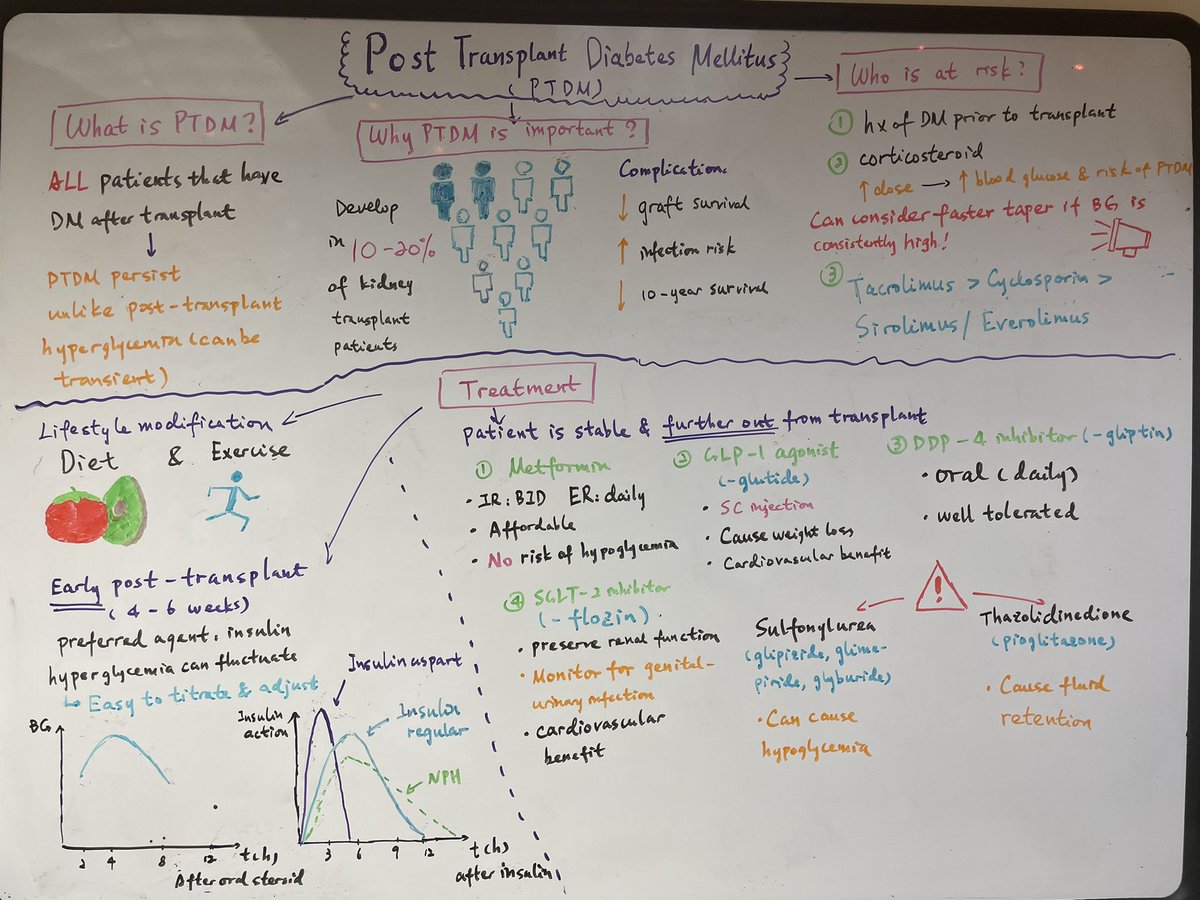 Post Transplant Diabetes Mellitus
(PTDM)
What is PTDM?
ALL patients that have
DM after transplant
↓
PTDM persist
unlike post-transplant
hyperglycemia (can be
transient)
Why PTDM is important?
Develop
in 10-20%
of kidney
transplant
patients
Complication:
↓ graft survival
↑ infection risk
↓ 10-year survival
Who is at risk?
① hx of DM prior to transplant
② corticosteroid
↑ dose → ↑ blood glucose & risk of PTDM
Can consider faster taper if BG is
consistently high!
③ Tacrolimus > Cyclosporin >
Sirolimus / Everolimus
Treatment
Lifestyle modification
Diet & Exercise
Early post-transplant
(4-6 weeks)
preferred agent: insulin
hyperglycemia can fluctuate
↳ Easy to titrate & adjust
BG
2 4 8 12 t(h)
After oral steroid
Insulin aspart
Insulin
action
Insulin
regular
NPH
3 6 9 12 t(h)
after insulin
patient is stable & further out from transplant
① Metformin
• IR: BID ER: daily
• Affordable
• No risk of hypoglycemia
② GLP-1 agonist
(-glutide)
• SC injection
• Cause weight loss
• Cardiovascular benefit
③ DDP-4 inhibitor (-gliptin)
• oral (daily)
• well tolerated
④ SGLT-2 inhibitor
(-flozin)
• preserve renal function
• Monitor for genital-
urinary infection
• cardiovascular
benefit
!
Sulfonylurea
(glipizide, glime-
piride, glyburide)
• Can cause
hypoglycemia
Thazolidinedione
(pioglitazone)
• Cause fluid
retention